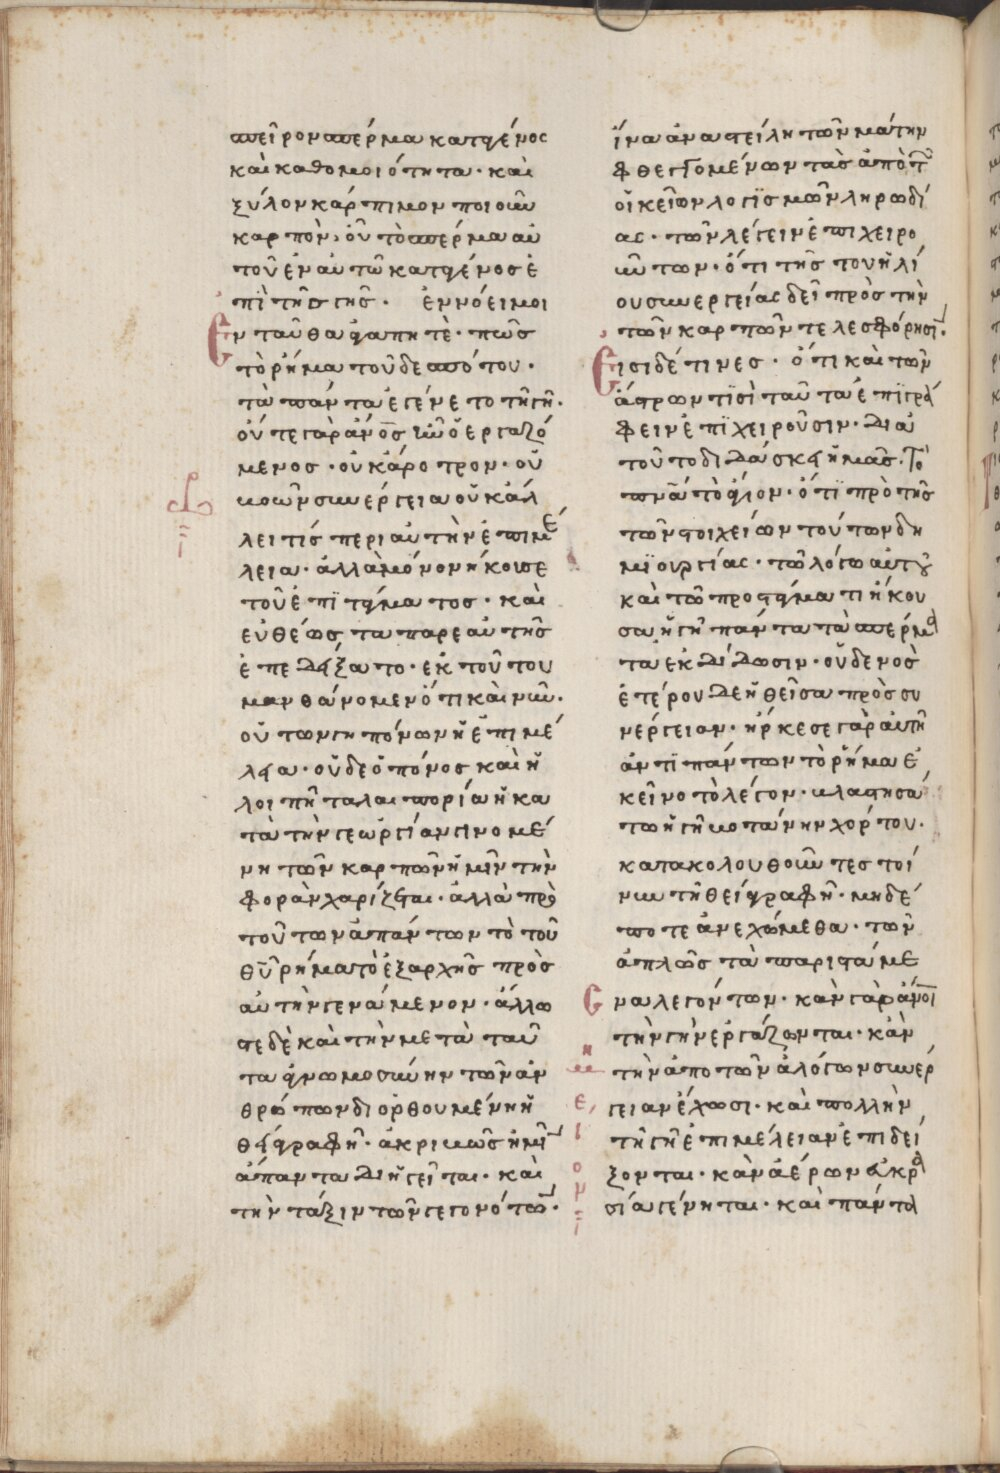 σπεῖρον σπέρμα κατὰ γένος
καὶ καθομοιότητα· καὶ
ξύλον κάρπιμον ποιοῦν
καρπὸν, οὗ τὸ σπέρμα αὐ
τοῦ ἐν αὐτῶ κατὰ γένος ἐ
πὶ τῆς γῆς· ἐννόει μοι
Ενταῦθα ἀγαπητὲ· πῶς
τὸ ῥῆμα τοῦ δεσπότου·
τὰ πάντα ἐγένετο τῆ γῆ·
οὔτε γὰρ ἄνος ἦν ὁ ἐργαζό
μενος· οὐκ ἄροτρον· οὐ
βοῶν συνέργεια οὐκ ἄλ
λει τίς περι αὐτὴν ἐπιμέ
λεια· ἀλλὰ μόνον ἤκουσε
τοῦ ἐπιτάγματος· καὶ
εὐθέως τα παρεαυτῆς
ἐπεδείξατο· ἐκ τούτου
μανθάνομεν ὅτι καὶ νῦν·
οὐ τῶν γηπόνων ἡ ἐπιμέ
λεια· οὐδε ὁ πόνος καὶ ἡ
λοιπὴ ταλαιπορία ἡ κα
τὰ τὴν γεωργίαν γινομέ
νη τῶν καρπῶν ἡμῖν τὴν
φορὰν χαρίζεται· ἀλλὰ πρὸ
τούτων ἁπάντων τὸ τοῦ
θῦ ῥῆμα τὸ ἐξαρχῆς πρὸς
αὐτὴν γενάμενον· ἄλλω
στε δὲ καὶ τὴν μετὰ ταῦ
τα ἀγνωμοσύνην τῶν ἀν
θρώπων διορθουμένη ἡ
θεία γραφὴ· ἀκριβῶς ἡμῖν
ἅπαντα διηγεῖται· καὶ
τὴν τάξιν τῶν γεγονότων·
ἵνα ἀναστείλη τῶν μάτην
φθεγγομένων τὰς ἀπὸ τῶν
οἰκείων λογισμῶν ληρωδί
ας· τῶν λέγειν ἐπιχειρο
ύντων· ὅτι τῆς του ἡλί
ου συνεργείας δεῖ πρὸς τὴν
τῶν καρπῶν τελεσφόρησιν·
Εισι δέ τινες· ὅτι καὶ τῶν
ἄστρων τισὶ ταῦτα ἐπιγρά
φειν ἐπιχειροῦσιν· διὰ
τοῦτο διδάσκει ἡμᾶς· Τὸ
πνᾶ τὸ ἅγιον· ὅτι πρὸ τῆς
τῶν στοιχείων τούτων δη
μιουργίας· τῶ λόγω αὐτοῦ
καὶ τῶ προστάγματι ἠκου
σα ἡ γῆ πάντα τὰ σπέρμα
τα ἐκδίδωσιν· οὐδενὸς
ἑτέρου δεηθεῖσα πρὸς συ
νέργειαν· ἤρκεσε γὰρ αὐτῆ
ἀντι πάντων τὸ ῥῆμα ἐ
κεῖνο τὸ λέγον· βλαστησά
τω ἡ γῆ βοτάνην χόρτου·
κατακολουθοῦντες τοί
νυν τῆ θεία γραφῆ· μηδέ
ποτε ἀνεχώμεθα· τῶν
ἁπλῶς τὰ παριστάμε
να λεγόντων· κἂν γὰρ ἄνοι
τὴν γὴν ἐργάζωνται· κἂν
τὴν ἀπο τῶν ἀλόγων συνέρ
γειαν ἔχωσι· καὶ πολλὴν
τῆ γῆ ἐπιμέλειαν ἐπιδεί
ξονται· κἂν ἀέρων εὐκρα
σία γένηται· καὶ πάντα